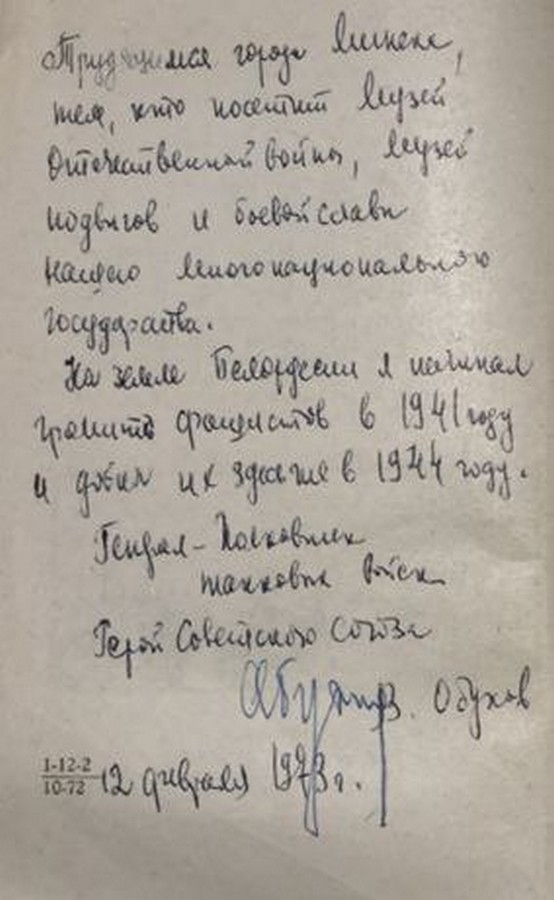 Трудящимся города Минска,
тем, кто посетит музей
Отечественной войны, музей
подвигов и боевой славы
нашего многонационального
государства.
На земле Белоруссии я начинал
громить фашистов в 1941 году
и добил их здесь же в 1944 году.
Генерал-Полковник
танковых войск
Герой Советского Союза
Обухов
1-12-2
10-72
12 февраля 1973 г.